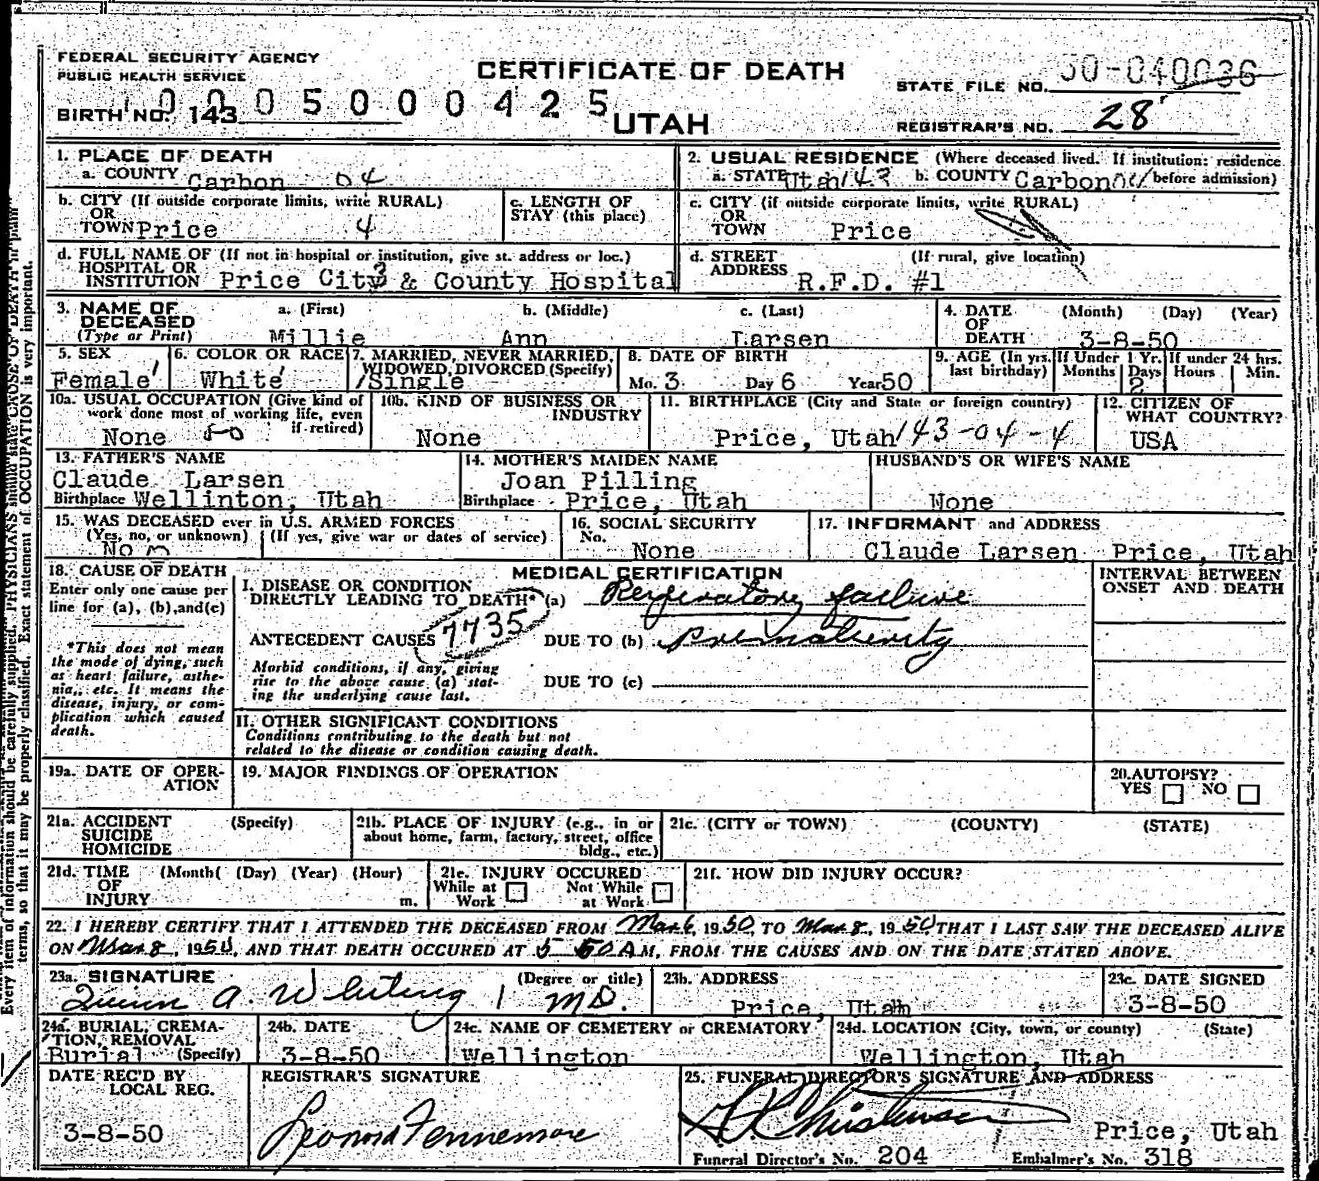 FEDERAL SECURITY AGENCY
PUBLIC HEALTH SERVICE
CERTIFICATE OF DEATH
STATE FILE NO. 50-040036
BIRTH NO. 143 0005000425
UTAH
REGISTRAR'S NO. 28
1. PLACE OF DEATH
a. COUNTY Carbon 04
2. USUAL RESIDENCE (Where deceased lived. If institution: residence before admission)
a. STATE Utah 143 b. COUNTY Carbon 04
b. CITY (If outside corporate limits, write RURAL)
OR
TOWN Price 4
c. LENGTH OF
STAY (this place)
c. CITY (if outside corporate limits, write RURAL)
OR
TOWN Price
d. FULL NAME OF (If not in hospital or institution, give st. address or loc.)
HOSPITAL OR
INSTITUTION Price City & County Hospital
3
d. STREET (If rural, give location)
ADDRESS R.F.D. #1
3. NAME OF DECEASED
(Type or Print)
a. (First) b. (Middle) c. (Last)
Millie Ann Larsen
4. DATE OF DEATH (Month) (Day) (Year)
3-8-50
5. SEX
Female
6. COLOR OR RACE
White
7. MARRIED, NEVER MARRIED,
WIDOWED, DIVORCED (Specify)
Single
8. DATE OF BIRTH
Mo. 3 Day 6 Year 50
9. AGE (In yrs. last birthday)
If Under 1 Yr. Months Days 2
If under 24 hrs. Hours Min.
10a. USUAL OCCUPATION (Give kind of
work done most of working life, even
if retired)
None 50
10b. KIND OF BUSINESS OR
INDUSTRY
None
11. BIRTHPLACE (City and State or foreign country)
Price, Utah 143-04-4
12. CITIZEN OF
WHAT COUNTRY?
USA
13. FATHER'S NAME
Claude Larsen
Birthplace Wellinton, Utah
14. MOTHER'S MAIDEN NAME
Joan Pilling
Birthplace Price, Utah
HUSBAND'S OR WIFE'S NAME
None
15. WAS DECEASED ever in U.S. ARMED FORCES
(Yes, no, or unknown) (If yes, give war or dates of service)
No
16. SOCIAL SECURITY
No.
None
17. INFORMANT and ADDRESS
Claude Larsen Price, Utah
18. CAUSE OF DEATH
Enter only one cause per
line for (a), (b), and (c)
*This does not mean
the mode of dying, such
as heart failure, asthe-
nia, etc. It means the
disease, injury, or com-
plication which caused
death.
MEDICAL CERTIFICATION
I. DISEASE OR CONDITION
DIRECTLY LEADING TO DEATH* (a) Respiratory failure
ANTECEDENT CAUSES 7735 DUE TO (b) prematurity
Morbid conditions, if any, giving
rise to the above cause (a) stat-
ing the underlying cause last.
DUE TO (c)
INTERVAL BETWEEN
ONSET AND DEATH
II. OTHER SIGNIFICANT CONDITIONS
Conditions contributing to the death but not
related to the disease or condition causing death.
19a. DATE OF OPER-
ATION
19. MAJOR FINDINGS OF OPERATION
20. AUTOPSY?
YES NO
21a. ACCIDENT (Specify)
SUICIDE
HOMICIDE
21b. PLACE OF INJURY (e.g., in or
about home, farm, factory, street, office
bldg., etc.)
21c. (CITY or TOWN) (COUNTY) (STATE)
21d. TIME (Month( (Day) (Year) (Hour)
OF
INJURY m.
21e. INJURY OCCURED
While at Work Not While at Work
21f. HOW DID INJURY OCCUR?
22. I HEREBY CERTIFY THAT I ATTENDED THE DECEASED FROM Mar 6, 1950, TO Mar 8, 1950 THAT I LAST SAW THE DECEASED ALIVE
ON Mar 8, 1950, AND THAT DEATH OCCURED AT 5 50 A M, FROM THE CAUSES AND ON THE DATE STATED ABOVE.
23a. SIGNATURE (Degree or title)
Quinn A. Whiting MD.
23b. ADDRESS
Price, Utah
23c. DATE SIGNED
3-8-50
24a. BURIAL, CREMA-
TION, REMOVAL
Burial (Specify)
24b. DATE
3-8-50
24c. NAME OF CEMETERY or CREMATORY
Wellington
24d. LOCATION (City, town, or county) (State)
Wellington, Utah
DATE REC'D BY
LOCAL REG.
3-8-50
REGISTRAR'S SIGNATURE
Leonora Fennemore
25. FUNERAL DIRECTOR'S SIGNATURE AND ADDRESS
Christensen
Price, Utah
Funeral Director's No. 204 Embalmer's No. 318
Every item of information should be carefully supplied. PHYSICIANS should state CAUSE OF DEATH in plain
terms, so that it may be properly classified. Exact statement of OCCUPATION is very important.